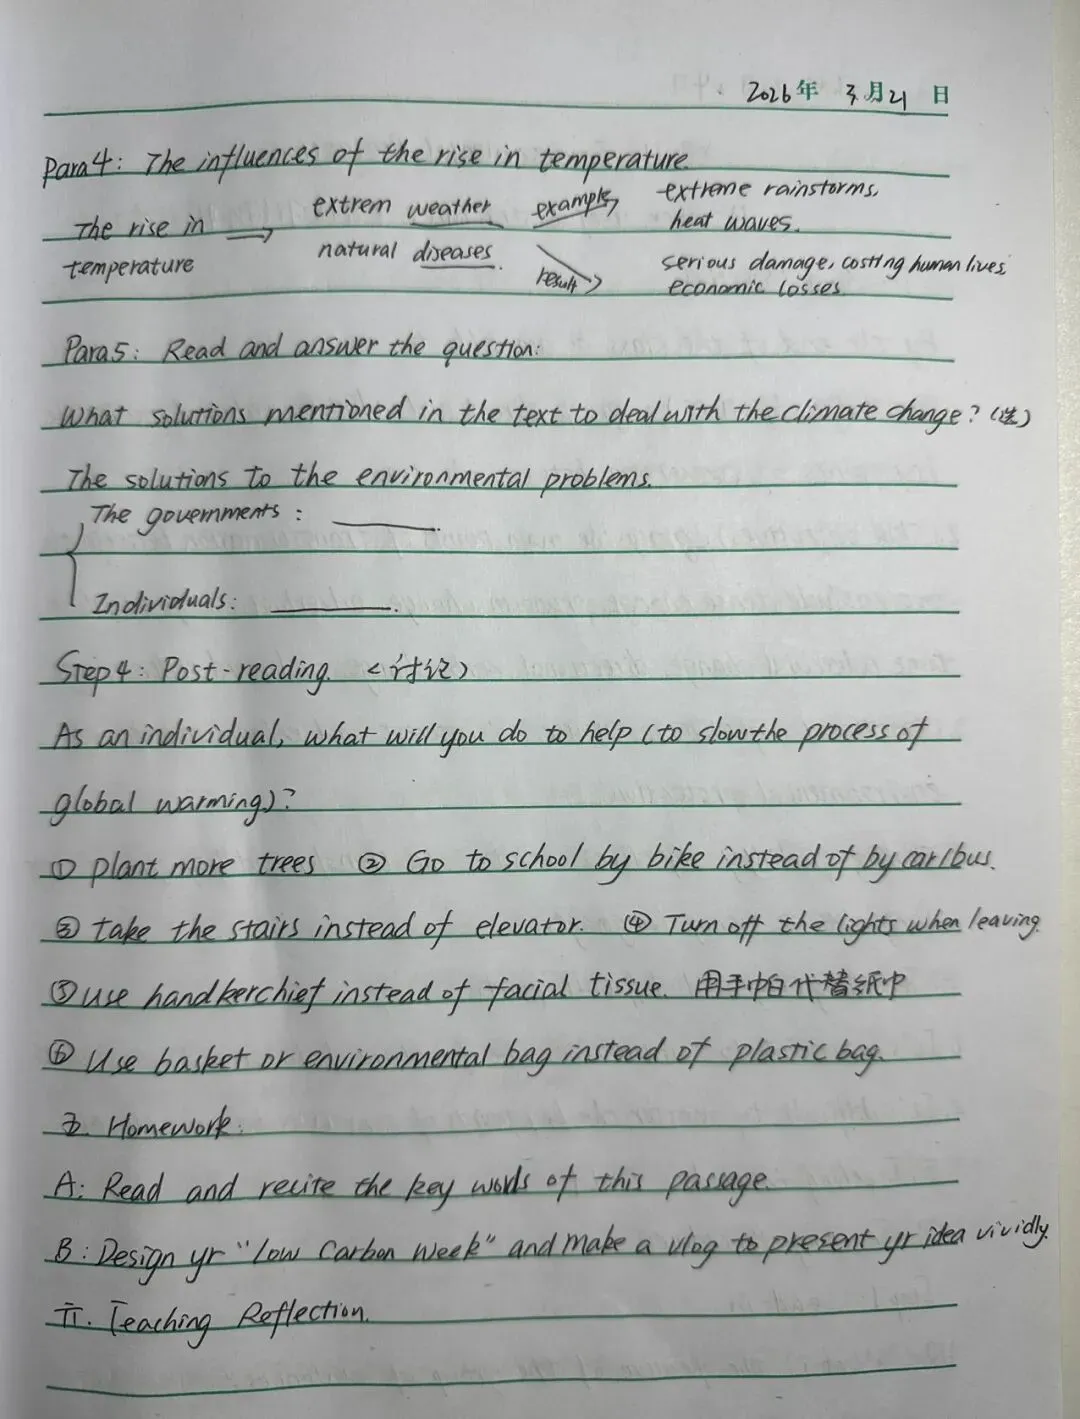 2026年 3月21日
Para4: The influences of the rise in temperature
The rise in temperature → extrem weather example→ extreme rainstorms, heat waves.
natural diseases. result→ serious damage, costing human lives, economic losses
Para5: Read and answer the question:
What solutions mentioned in the text to deal with the climate change? (选)
The solutions to the environmental problems.
The governments: ______.
Individuals: ______.
Step4: Post-reading. <讨论>
As an individual, what will you do to help (to slow the process of
global warming)?
① plant more trees ② Go to school by bike instead of by car/bus.
③ take the stairs instead of elevator. ④ Turn off the lights when leaving.
⑤ use handkerchief instead of facial tissue. 用手帕代替纸巾
⑥ Use basket or environmental bag instead of plastic bag.
五. Homework:
A: Read and recite the key words of this passage.
B: Design yr "Low Carbon Week" and make a vlog to present yr idea vividly.
六. Teaching Reflection.